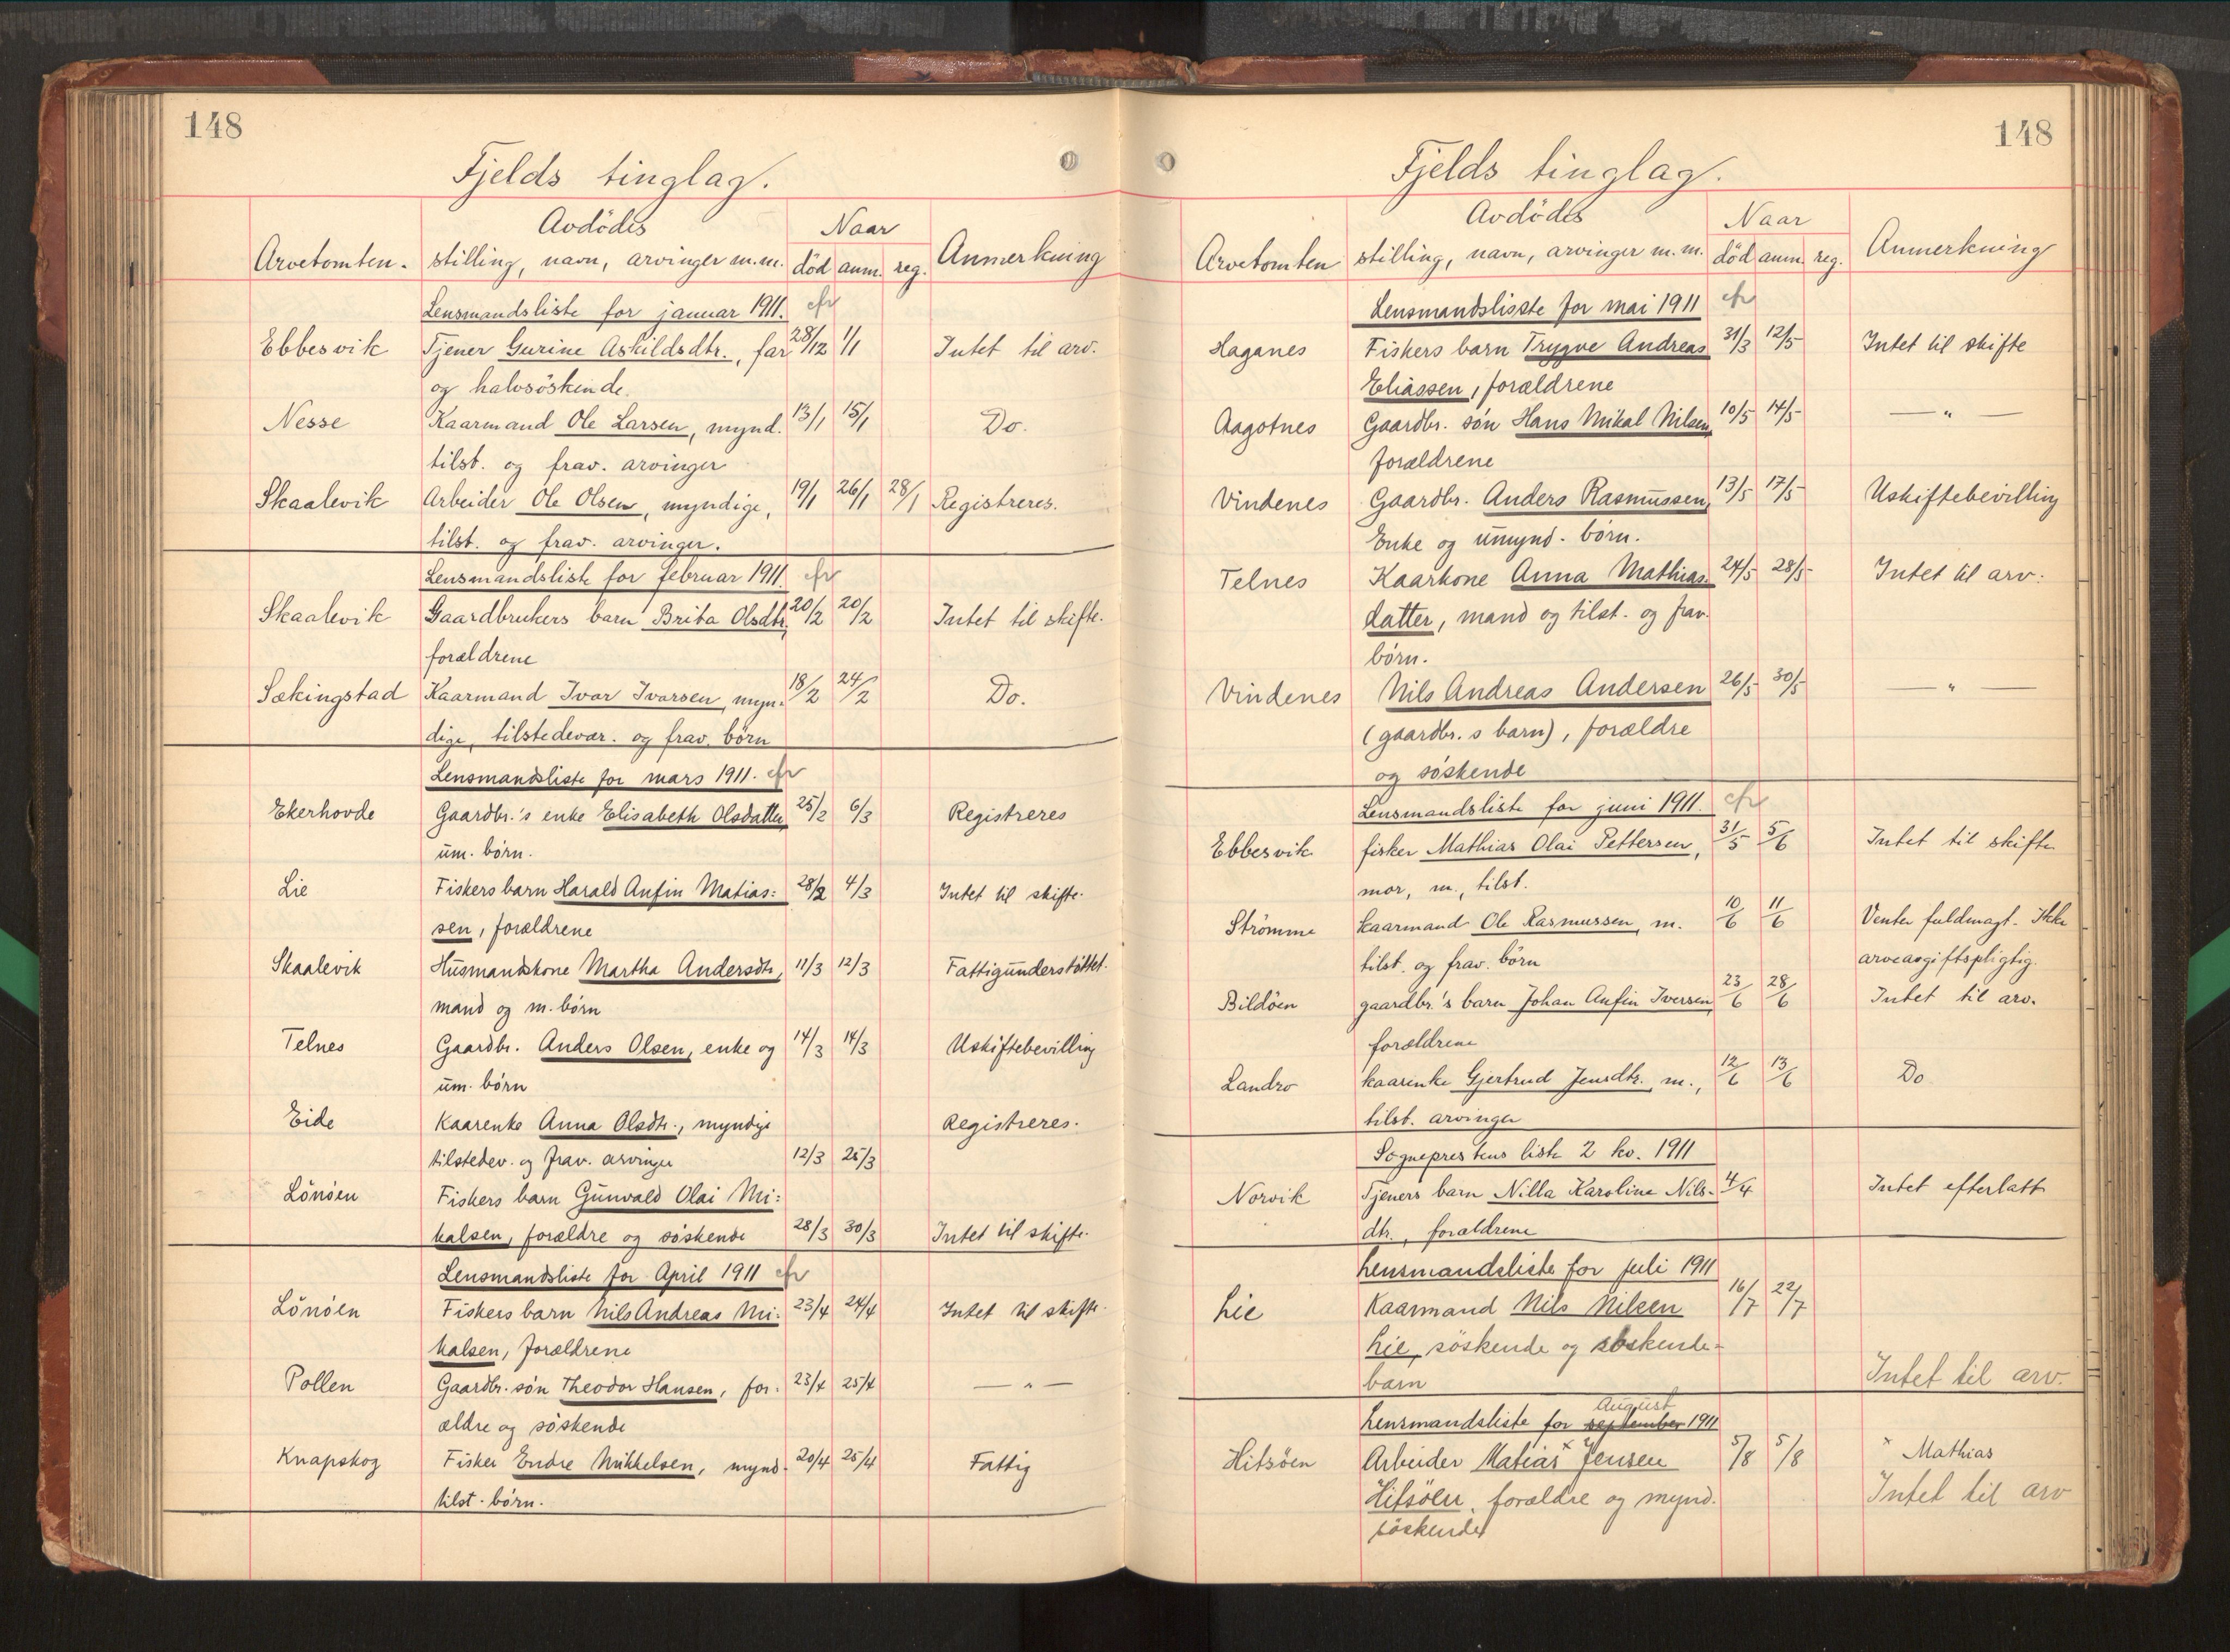 148
Fjelds tinglag.
Avdödes Naar
Arvetomten. stilling, navn, arvinger m.m. död anm. reg. Anmerkning
Lensmandsliste for januar 1911. cfr
Ebbesvik Tjener Gurine Askildsdtr., far 28/12 1/1 Intet til arv.
og halvsöskende.
Nesse Kaarmand Ole Larsen, mynd. 13/1 15/1 Do.
tilst. og frav. arvinger
Skaalevik Arbeider Ole Olsen, myndige, 19/1 26/1 28/1 Registreres.
tilst. og frav. arvinger.
Lensmandsliste for februar 1911. cfr
Skaalevik Gaardbrukers barn Brita Olsdtr, 20/2 20/2 Intet til skifte.
forældrene
Sækingstad Kaarmand Ivar Ivarsen, myn- 18/2 24/2 Do.
dige, tilstedevær. og frav. börn
Lensmandsliste for mars 1911. cfr
Ekerhovde Gaardbr.'s enke Elisabeth Olsdatter, 25/2 6/3 Registreres
um. börn.
Lie Fiskers barn Harald Anfin Matias: 28/2 4/3 Intet til skifte.
sen, forældrene
Skaalevik Husmandskone Martha Andersdtr, 11/3 12/3 Fattigunderstöttet.
mand og m. börn
Telnes Gaardbr. Anders Olsen, enke og 14/3 14/3 Uskiftebevilling
um. börn
Eide Kaarenke Anna Olsdtr., myndige Registreres.
tilstedev. og frav. arvinger 12/3 25/3
Lönöen Fiskers barn Gunvald Olai Mi:
kalsen, forældre og söskende 28/3 30/3 Intet til skifte.
Lensmandsliste for April 1911 cfr
Lönöen Fiskers barn Nils Andreas Mi: 23/4 24/4 Intet til skifte.
kalsen, forældrene
Pollen Gaardbr. sön Theodor Hansen, for: 23/4 25/4 — " —
ældre og söskende
Knapskog Fisker Endre Mikkelsen, mynd. 20/4 25/4 Fattig
tilst. börn.
148
Fjelds tinglag.
Avdödes Naar
Arvetomten stilling, navn, arvinger m.m. död anm. reg. Anmerkning
Lensmandslisste for mai 1911 cfr
Haganes Fiskers barn Trygve Andreas 31/3 12/5 Intet til skifte
Eliassen, forældrene
Aagotnes Gaardbr. sön Hans Mikal Nilsen, 10/5 14/5 — " —
forældrene
Vindenes Gaardbr. Anders Rasmussen, 13/5 17/5 Uskiftebevilling
Enke og umynd. börn.
Telnes Kaarkone Anna Mathias- 24/5 28/5 Intet til arv.
datter, mand og tilst. og frav.
börn.
Vindenes Nils Andreas Andersen 26/5 30/5 — " —
(gaardbr. s barn), forældre
og söskende
Lensmandsliste for juni 1911. cfr
Ebbesvik fisker Mathias Olai Pettersen, 31/5 5/6 Intet til skifte
mor, m., tilst.
Strömme kaarmand Ole Rasmussen, m. 10/6 11/6 Venter fuldmagt. Ikke
tilst. og frav. börn arveavgiftspligtig.
Bildöen gaardbr.'s barn Johan Anfin Iversen, 23/6 28/6 Intet til arv.
forældrene
Landro kaarenke Gjertrud Jensdtr. m., 12/6 13/6 Do
tilst. arvinger
Sogneprestens liste 2 kv. 1911
Norvik Tjeners barn Nilla Karoline Nils- 4/4 Intet efterlatt
dtr., forældrene
Lensmandsliste for juli 1911
Lie Kaarmand Nils Nilsen 16/7 22/7
Lie, söskende og söskende-
barn Intet til arv.
August
Lensmandsliste for september 1911
Hitsöen Arbeider Matias x Jensen 5/8 5/8 x Mathias
Hitsöen, forældre og mynd. Intet til arv
söskende